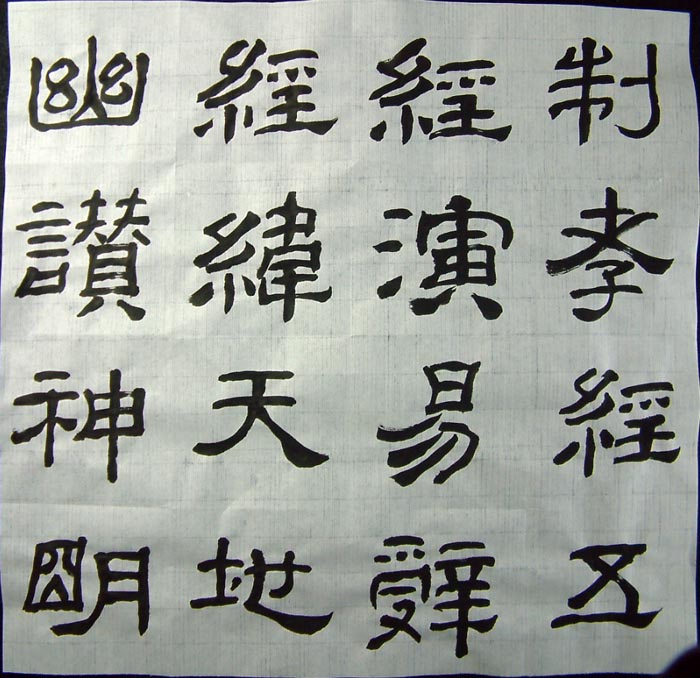 制孝經五
經演易辭
經緯天地
幽讃神明